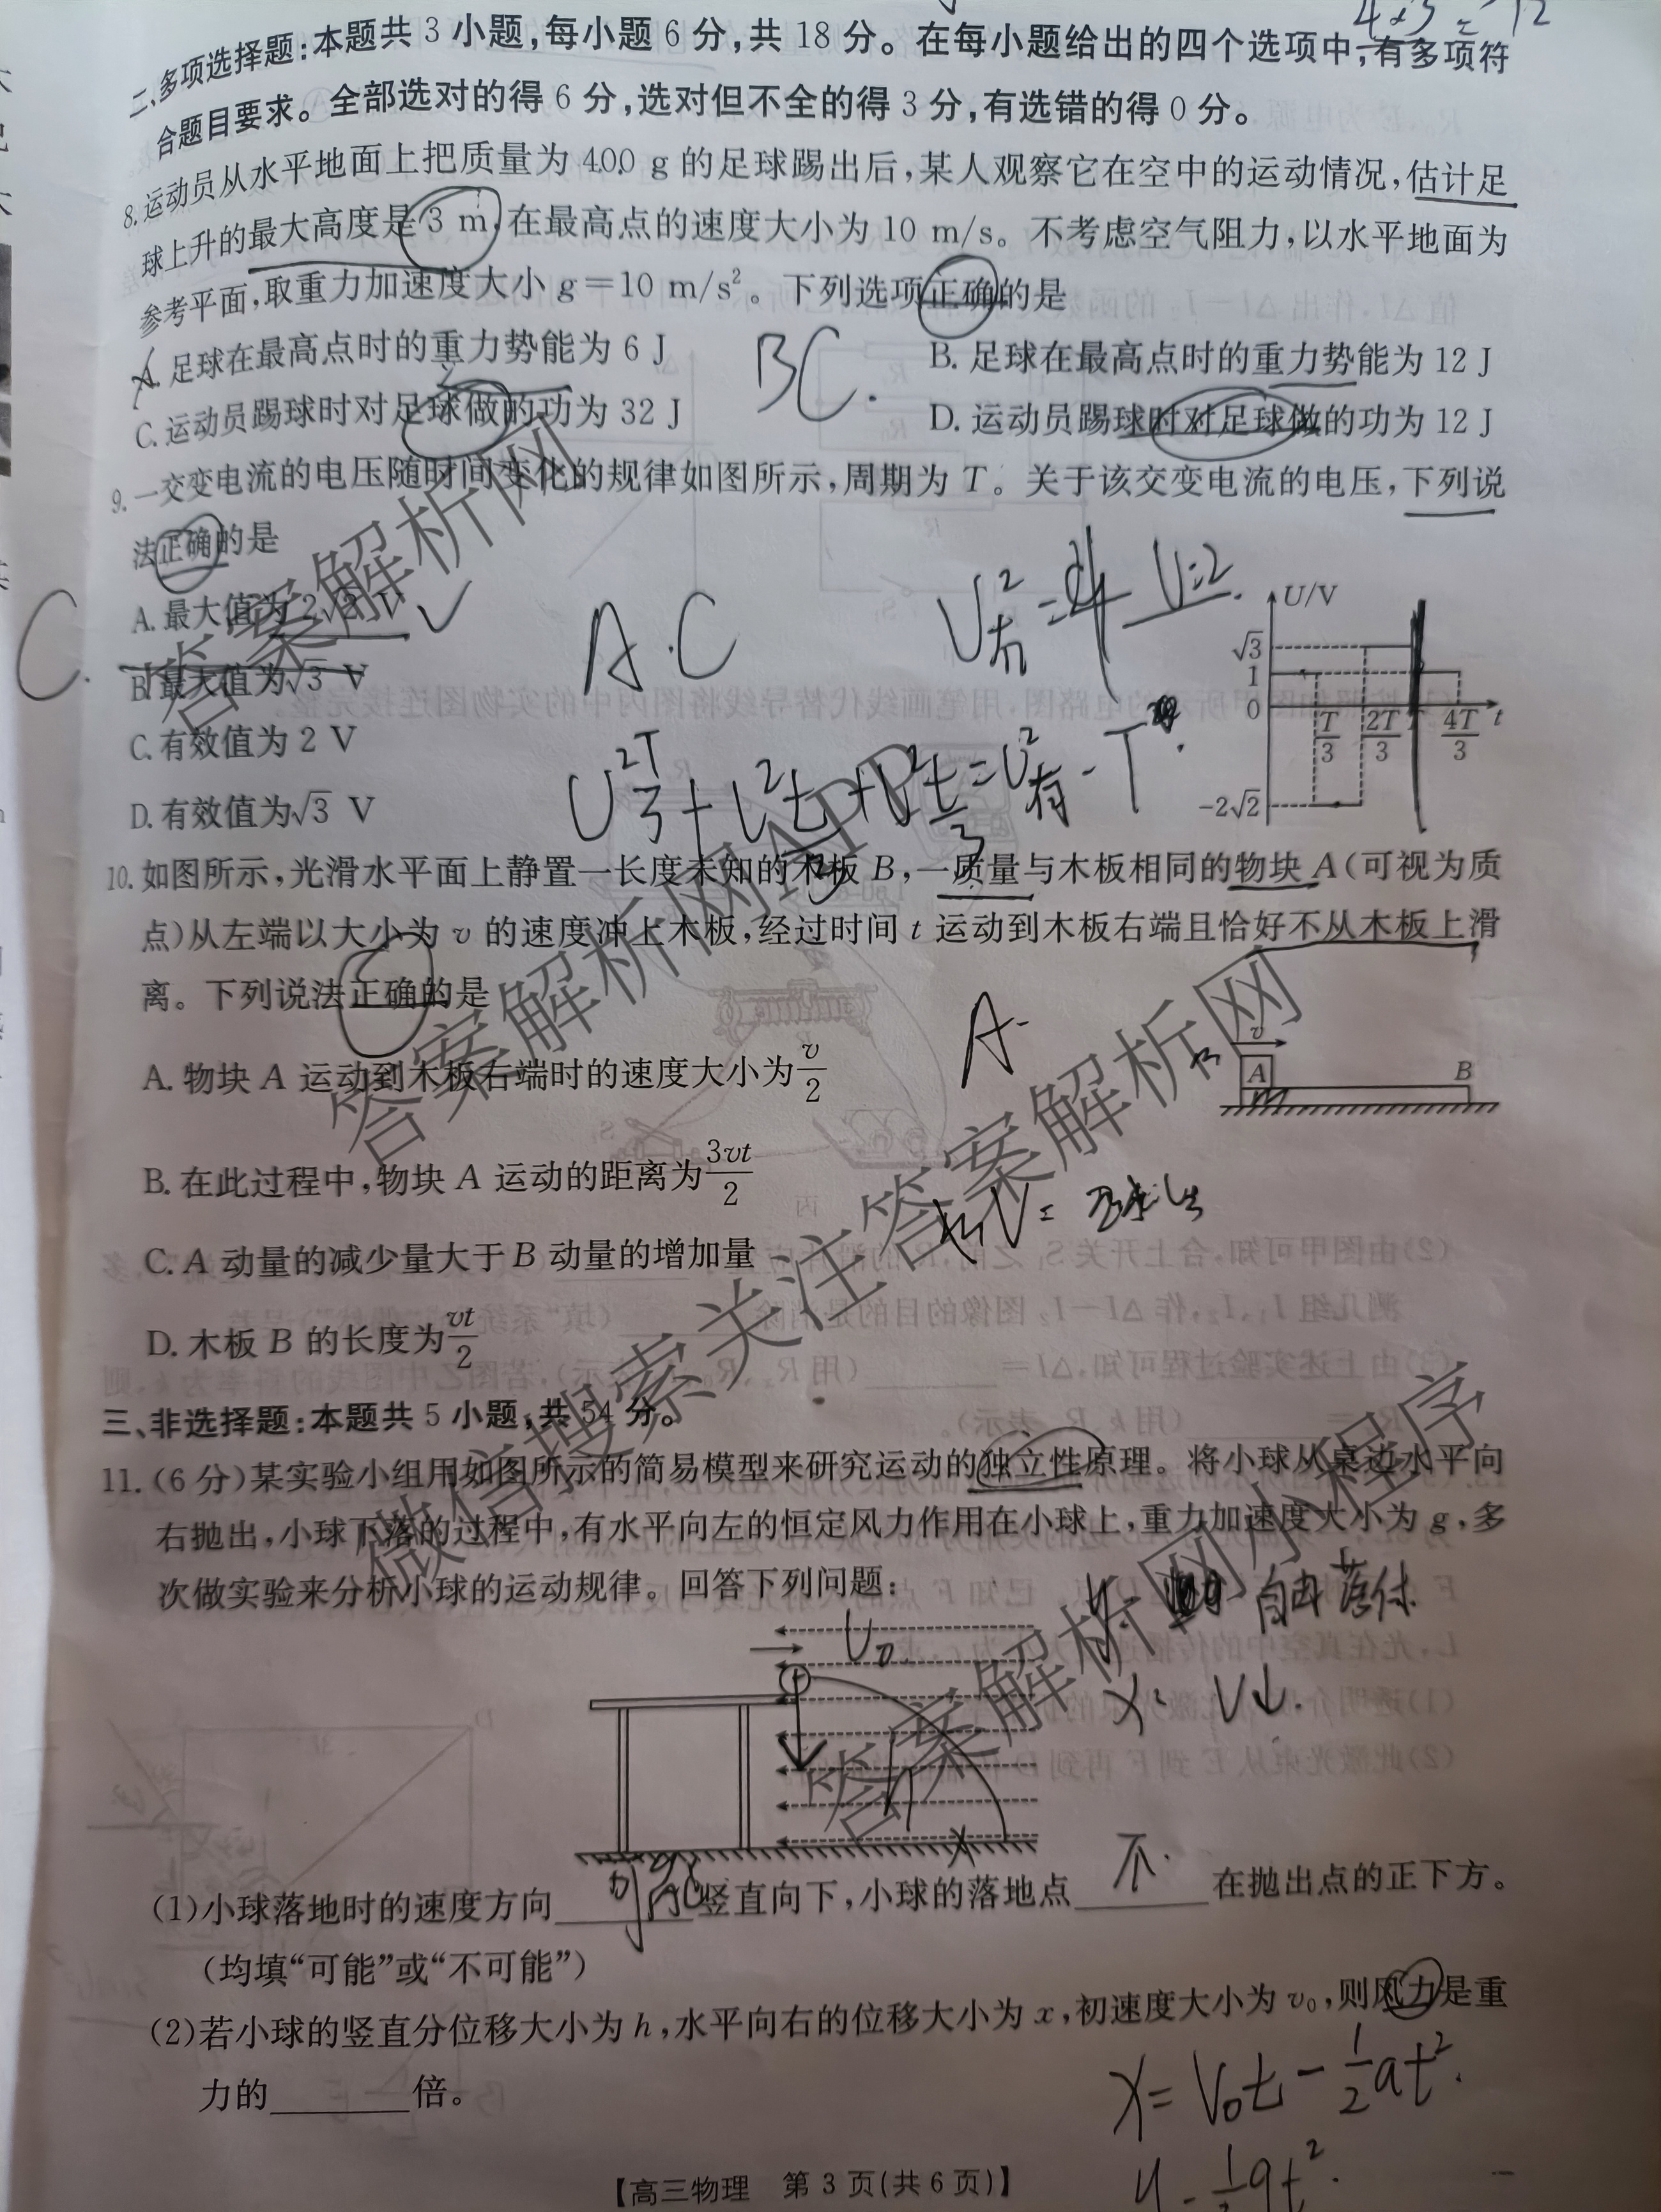 4×3=12
二、多项选择题:本题共 3 小题,每小题 6 分,共 18 分。在每小题给出的四个选项中,有多项符
合题目要求。全部选对的得 6 分,选对但不全的得 3 分,有选错的得 0 分。
8. 运动员从水平地面上把质量为 400 g 的足球踢出后,某人观察它在空中的运动情况,估计足
球上升的最大高度是 3 m,在最高点的速度大小为 10 m/s。不考虑空气阻力,以水平地面为
参考平面,取重力加速度大小 g=10 m/s²。下列选项正确的是
A. 足球在最高点时的重力势能为 6 J
B. 足球在最高点时的重力势能为 12 J
BC.
C. 运动员踢球时对足球做的功为 32 J
D. 运动员踢球时对足球做的功为 12 J
9. 一交变电流的电压随时间变化的规律如图所示,周期为 T。关于该交变电流的电压,下列说
法正确的是
A. 最大值为 2√2 V
B. 最大值为√3 V
C. 有效值为 2 V
D. 有效值为√3 V
C.
A.C
U/V
√3
1
0
T/3
2T/3
T
4T/3
t
-2√2
10. 如图所示,光滑水平面上静置一长度未知的木板 B,一质量与木板相同的物块 A(可视为质
点)从左端以大小为 v 的速度冲上木板,经过时间 t 运动到木板右端且恰好不从木板上滑
离。下列说法正确的是
A. 物块 A 运动到木板右端时的速度大小为v/2
B. 在此过程中,物块 A 运动的距离为3vt/2
C. A 动量的减少量大于 B 动量的增加量
D. 木板 B 的长度为vt/2
A.
v
A
B
三、非选择题:本题共 5 小题,共 54 分。
11. (6 分)某实验小组用如图所示的简易模型来研究运动的独立性原理。将小球从桌边水平向
右抛出,小球下落的过程中,有水平向左的恒定风力作用在小球上,重力加速度大小为 g,多
次做实验来分析小球的运动规律。回答下列问题:
自由落体
x: V↓.
V₀.
h
x
(1)小球落地时的速度方向 可能 竖直向下,小球的落地点 不. 在抛出点的正下方。
(均填“可能”或“不可能”)
(2)若小球的竖直分位移大小为 h,水平向右的位移大小为 x,初速度大小为 v₀,则风力是重
力的________倍。
x=V₀t-1/2at².
【高三物理 第 3 页(共 6 页)】
答案解析网
答案解析网APP
微信搜索关注答案解析网
答案解析网小程序